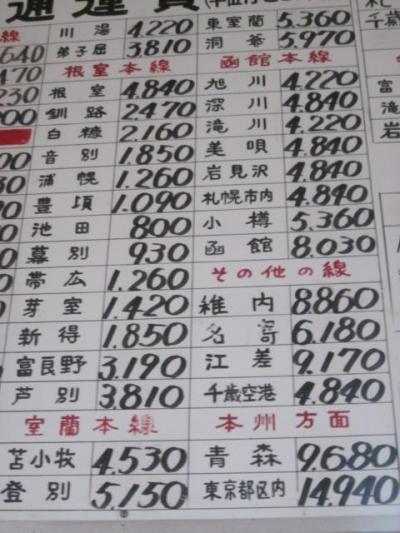 通運賃
川湯 4.220
弟子屈 3.810
根室本線
根室 4.840
釧路 2.470
白糠 2.160
音別 1.850
浦幌 1.260
豊頃 1.090
池田 800
幕別 930
帯広 1.260
芽室 1.420
新得 1.850
富良野 3.190
芦別 3.810
室蘭本線
苫小牧 4.530
登別 5.150
東室蘭 5.360
洞爺 5.970
函館本線
旭川 4.220
深川 4.840
滝川 4.220
美唄 4.840
岩見沢 4.840
札幌市内 4.840
小樽 5.360
函館 8.030
その他の線
稚内 8.860
名寄 6.180
江差 9.170
千歳空港 4.840
本州方面
青森 9.680
東京都区内 14.940